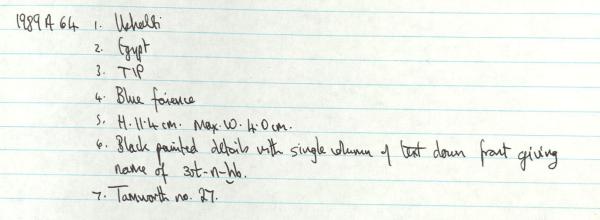 1989 A 64 1. Ushabti
2. Egypt
3. TIP
4. Blue faience
5. H. 11.4 cm. Max. W. 4.0 cm.
6. Black painted details with single column of text down front giving
name of 3st-n-ḫb.
7. Tamworth no. 27.